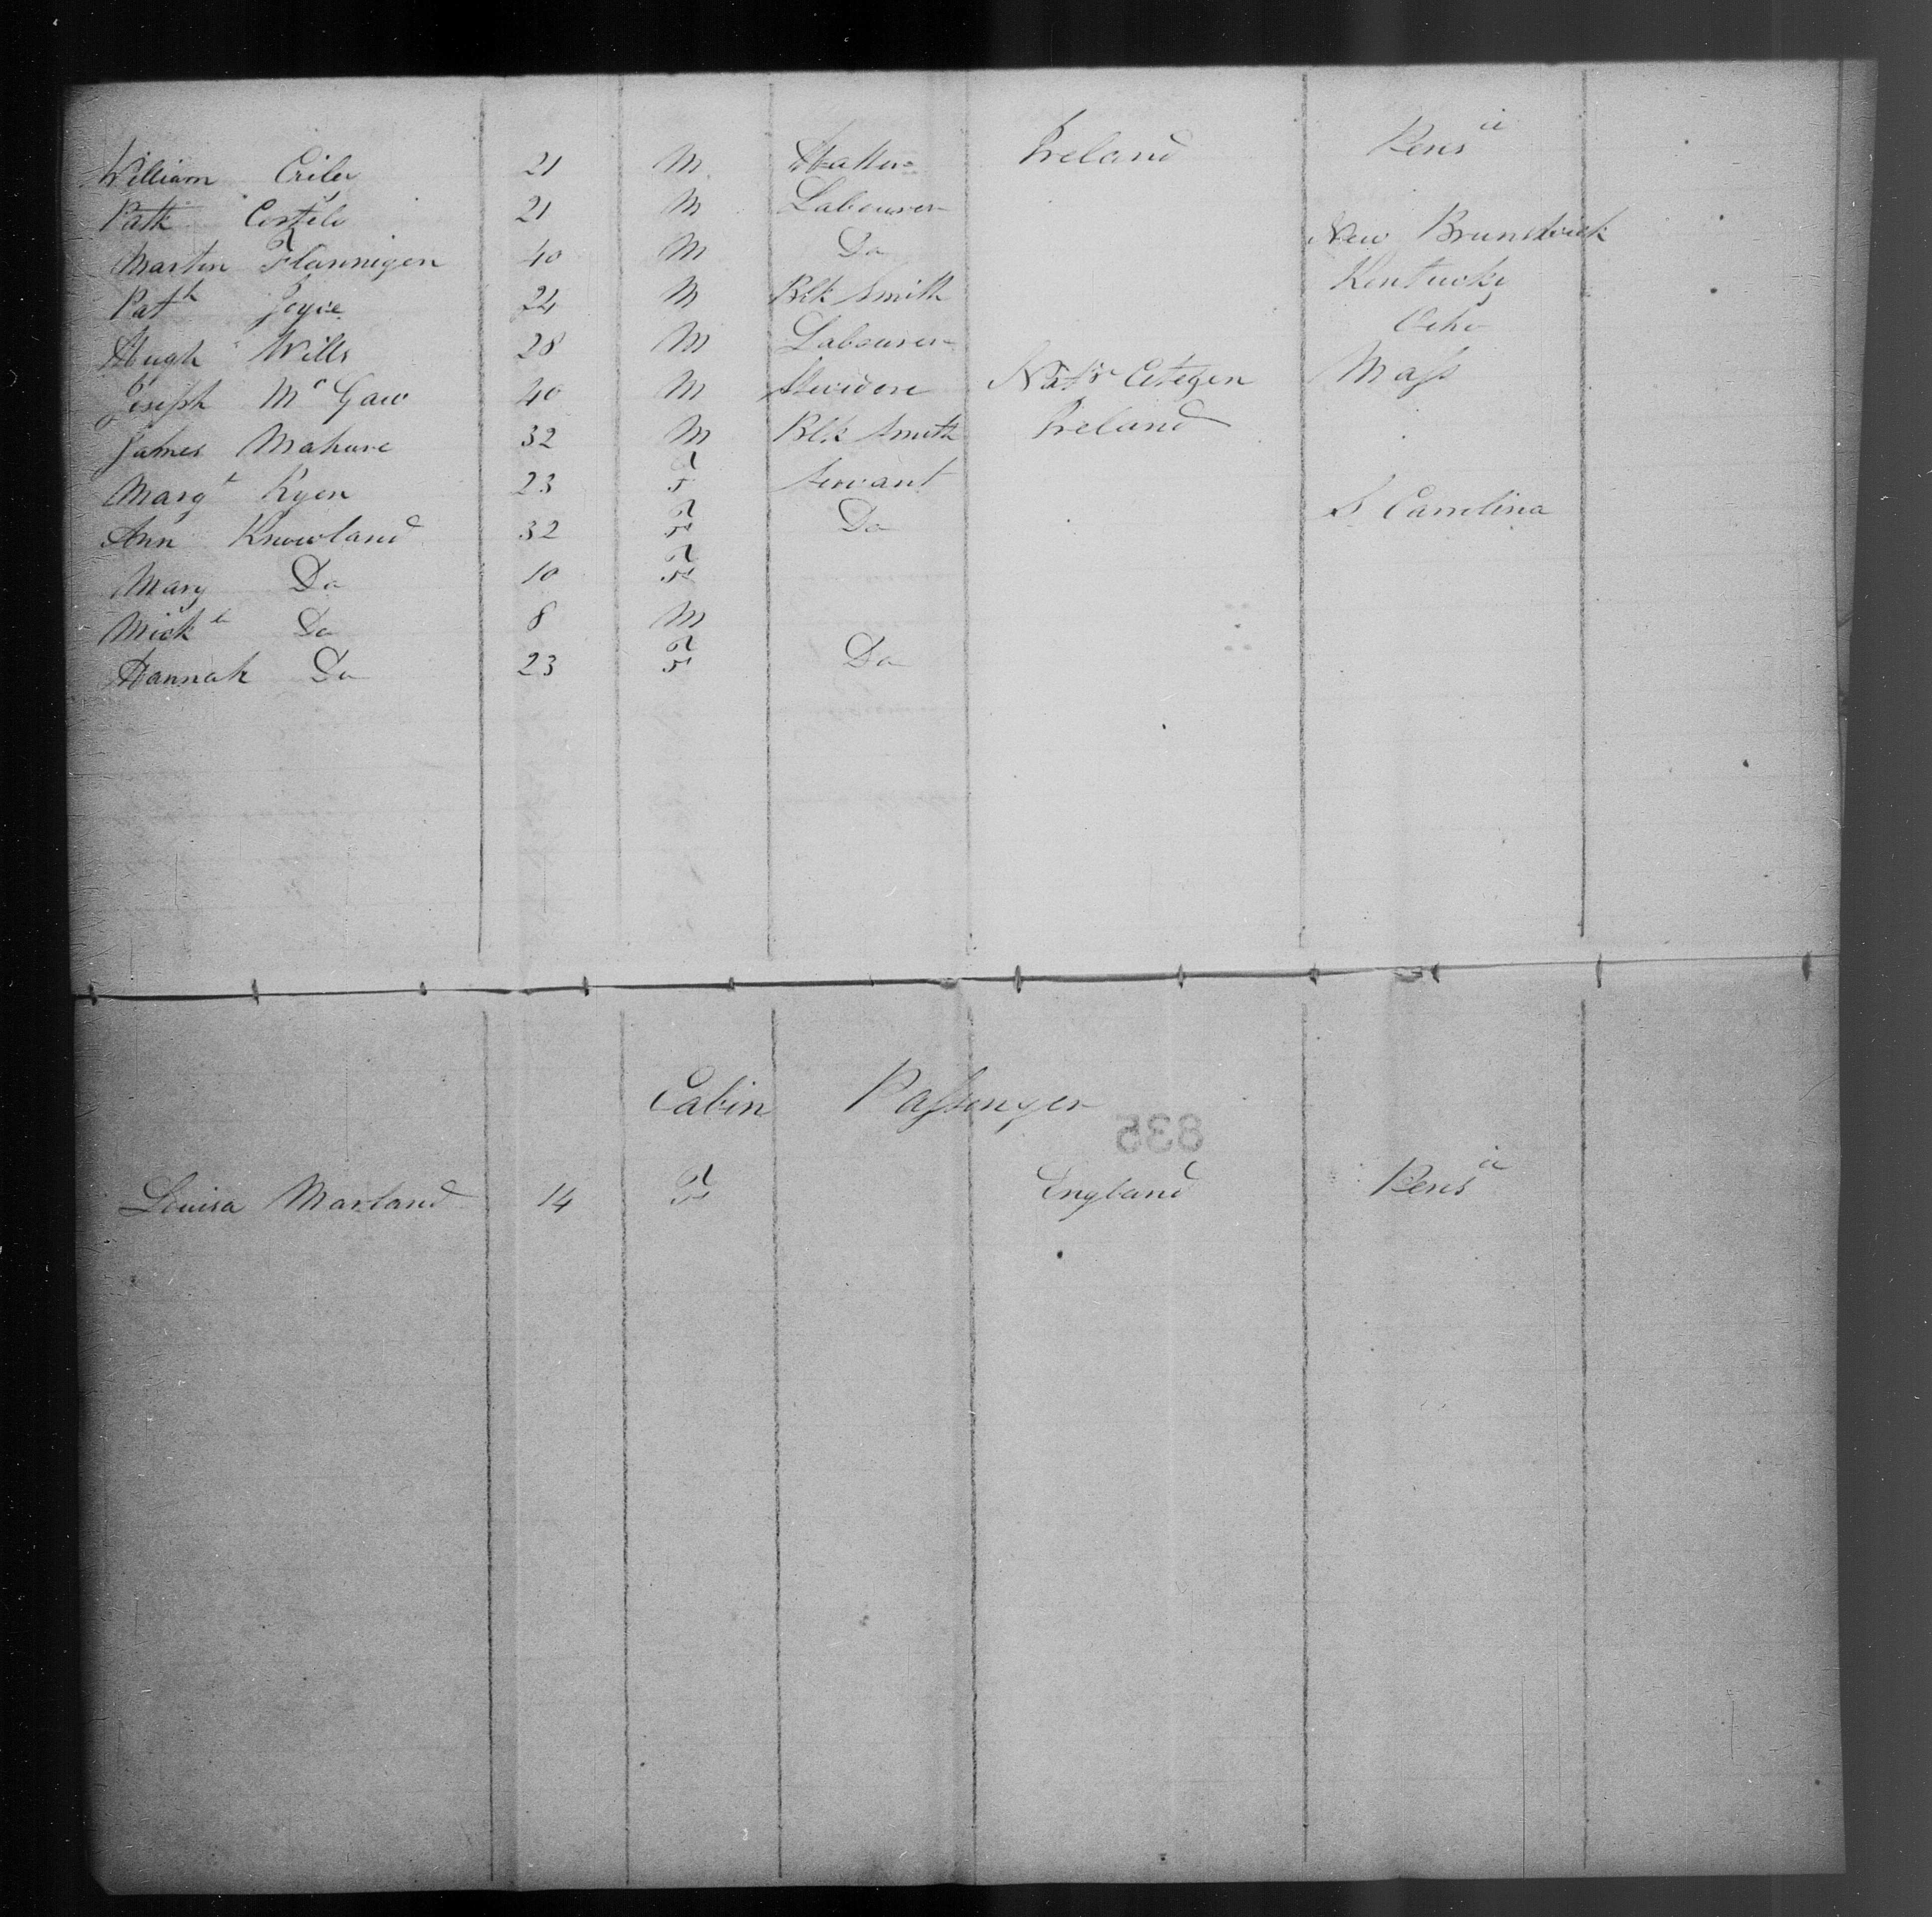 William Criler 21 M Hatter Ireland Pens a
Patk Costilo 21 M Labourer
Martin Flannigen 40 M Do New Brunswick
Pat k Joyce 24 M Blk Smith Kentucky
Hugh Wills 28 M Labourer Ohio
Joseph Mc Gaw 40 M Stevidore Nat's Citezen Mass
James Mahare 32 M Blk Smith Ireland
Marg t Ryen 23 F Servant
Ann Knowland 32 F Do S Carolina
Mary Do 10 F
Mick l Do 8 M
Hannah Do 23 F Do
Cabin Passenger
835
Louisa Marland 14 F England Pens a